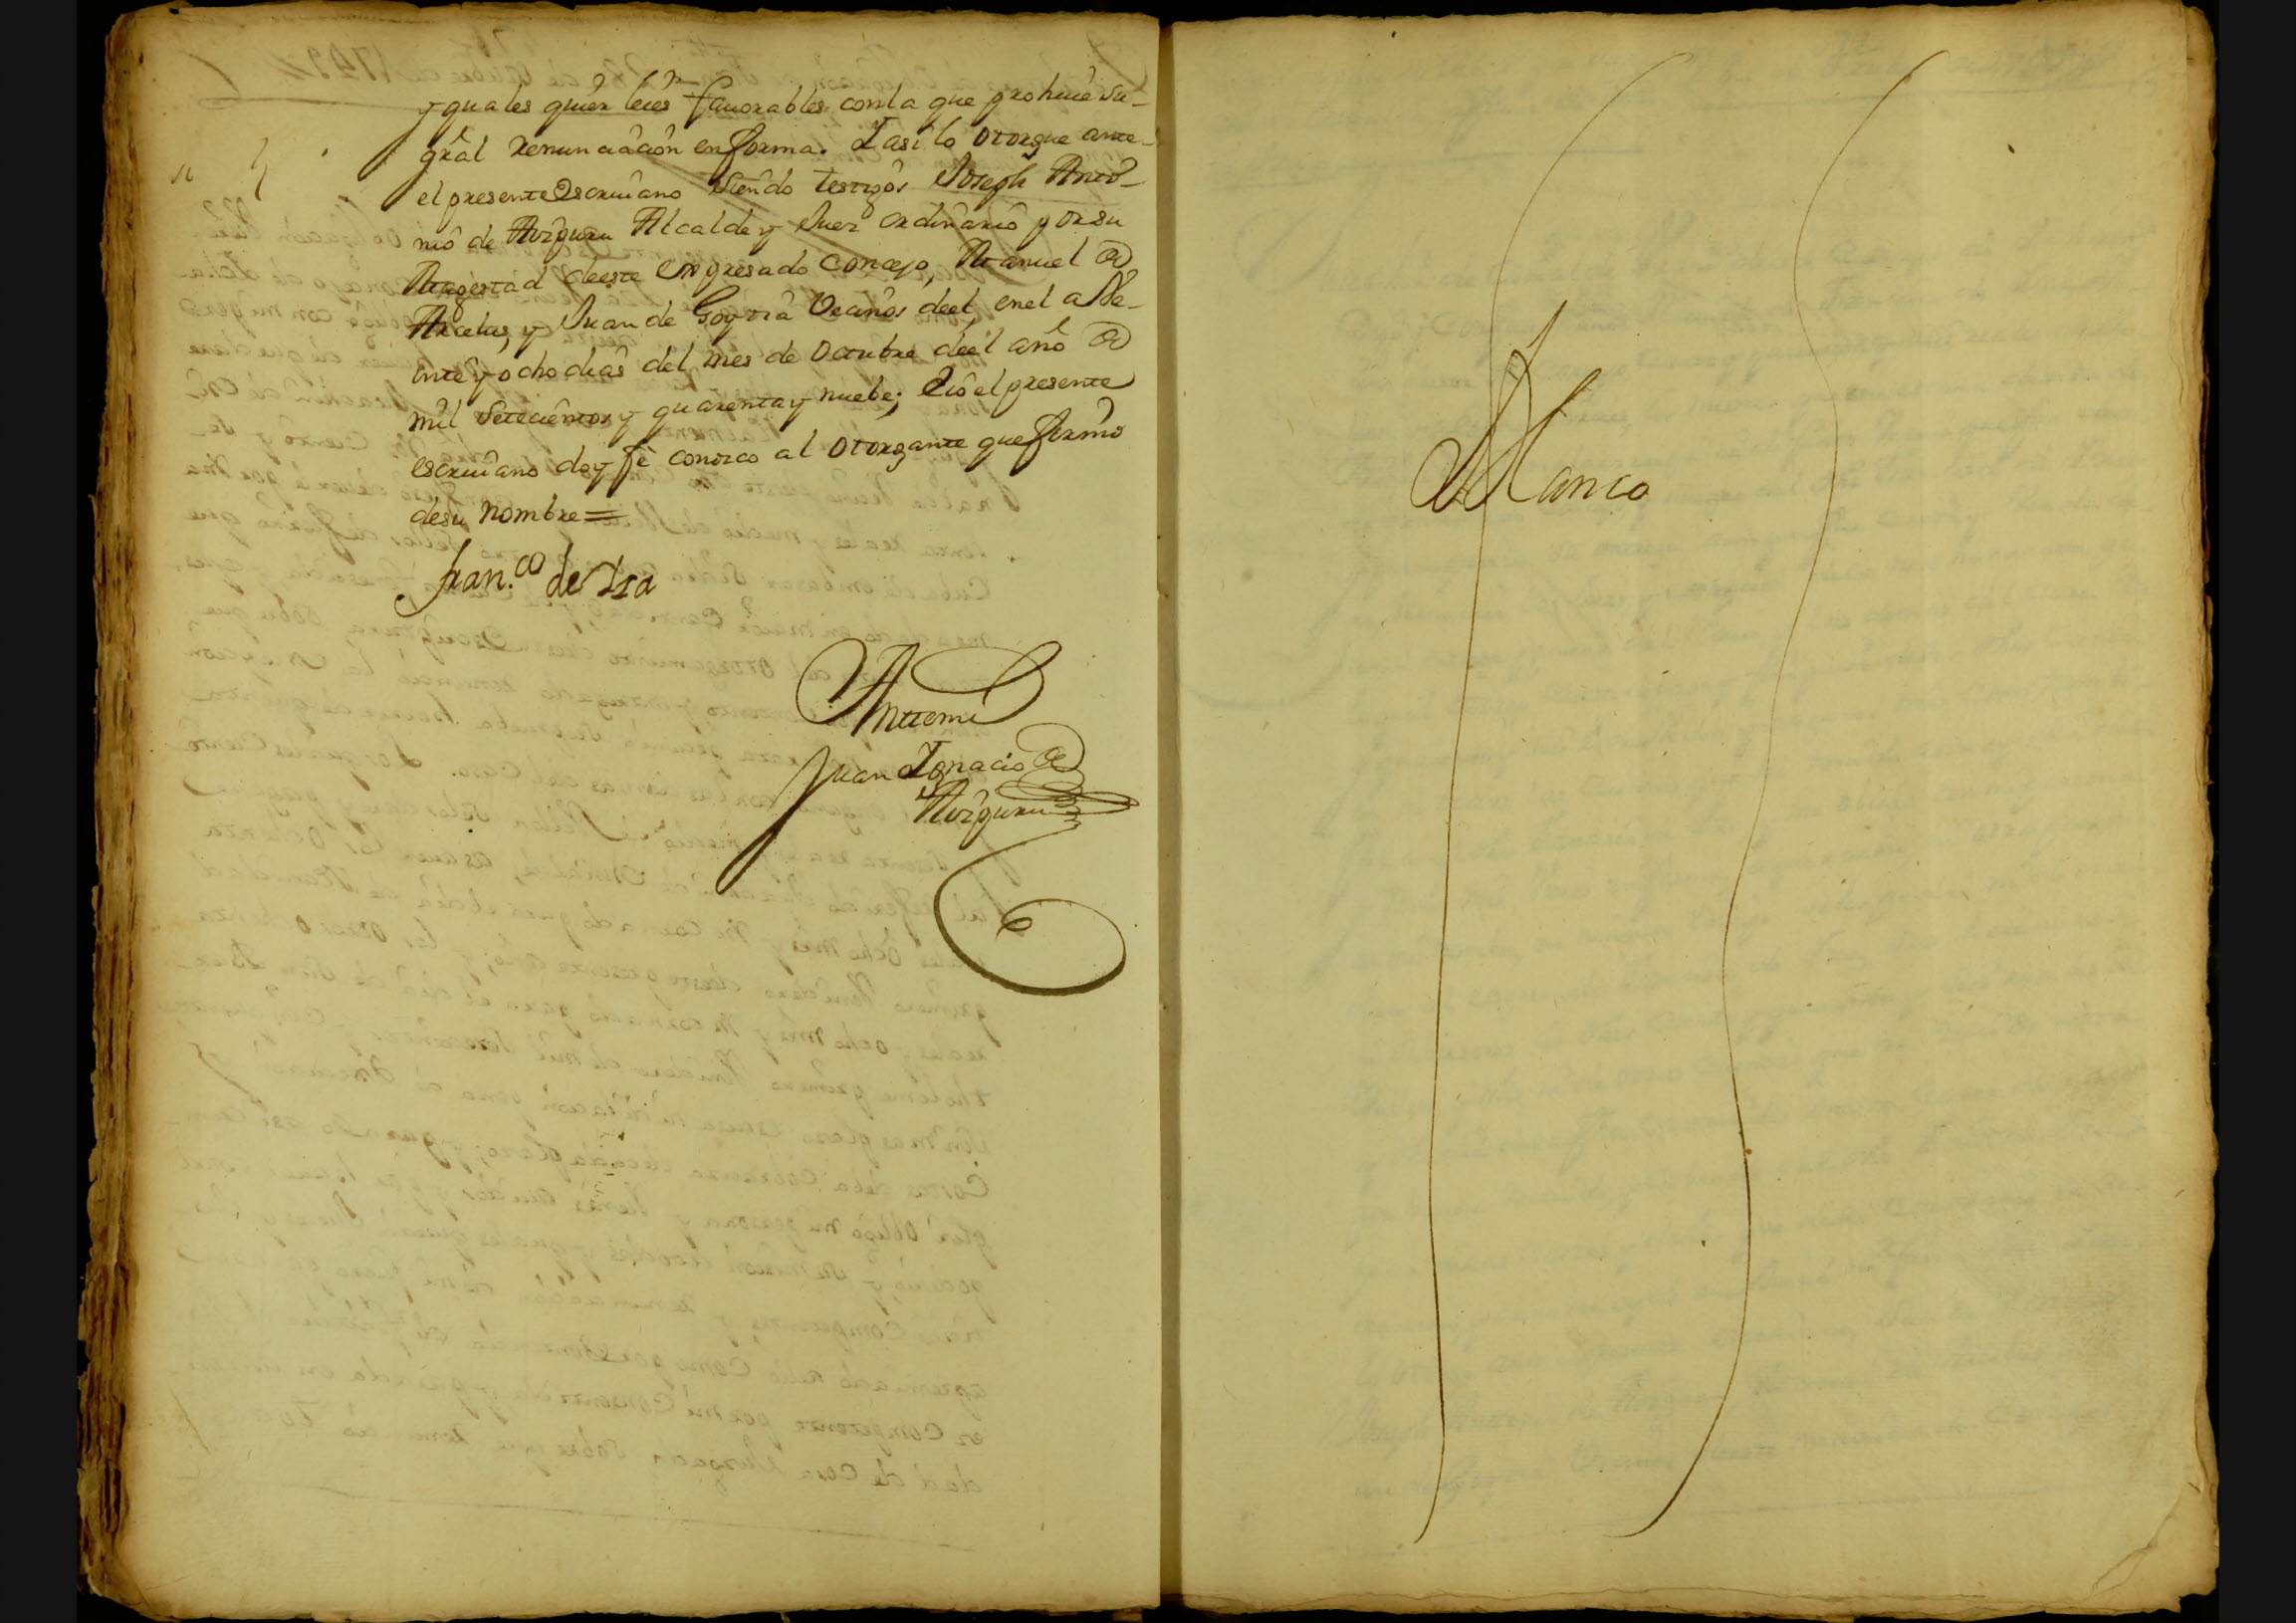 y quales quier leies favorables con la que prohive su
gr̃al renunciaçion en forma. Y asi lo otorgue ante
el presente Escriuano siendo testigos Joseph Anto-
nio de Aozguru Alcalde y Juez ordinario por su
Magestad deeste expresado Concejo, Manuel de
Arcelus, y Juan de Goytia Vecinos deel, en el a Ve-
inte y ocho dias del mes de Octubre deel año de
mil setecientos y quarenta y nuebe; E io el presente
escriuano doy fe conozco al otorgante que firmó
de su nombre=
Fran.co de Iza
Antemi
Juan Ignacio de
Aozguru
Blanco